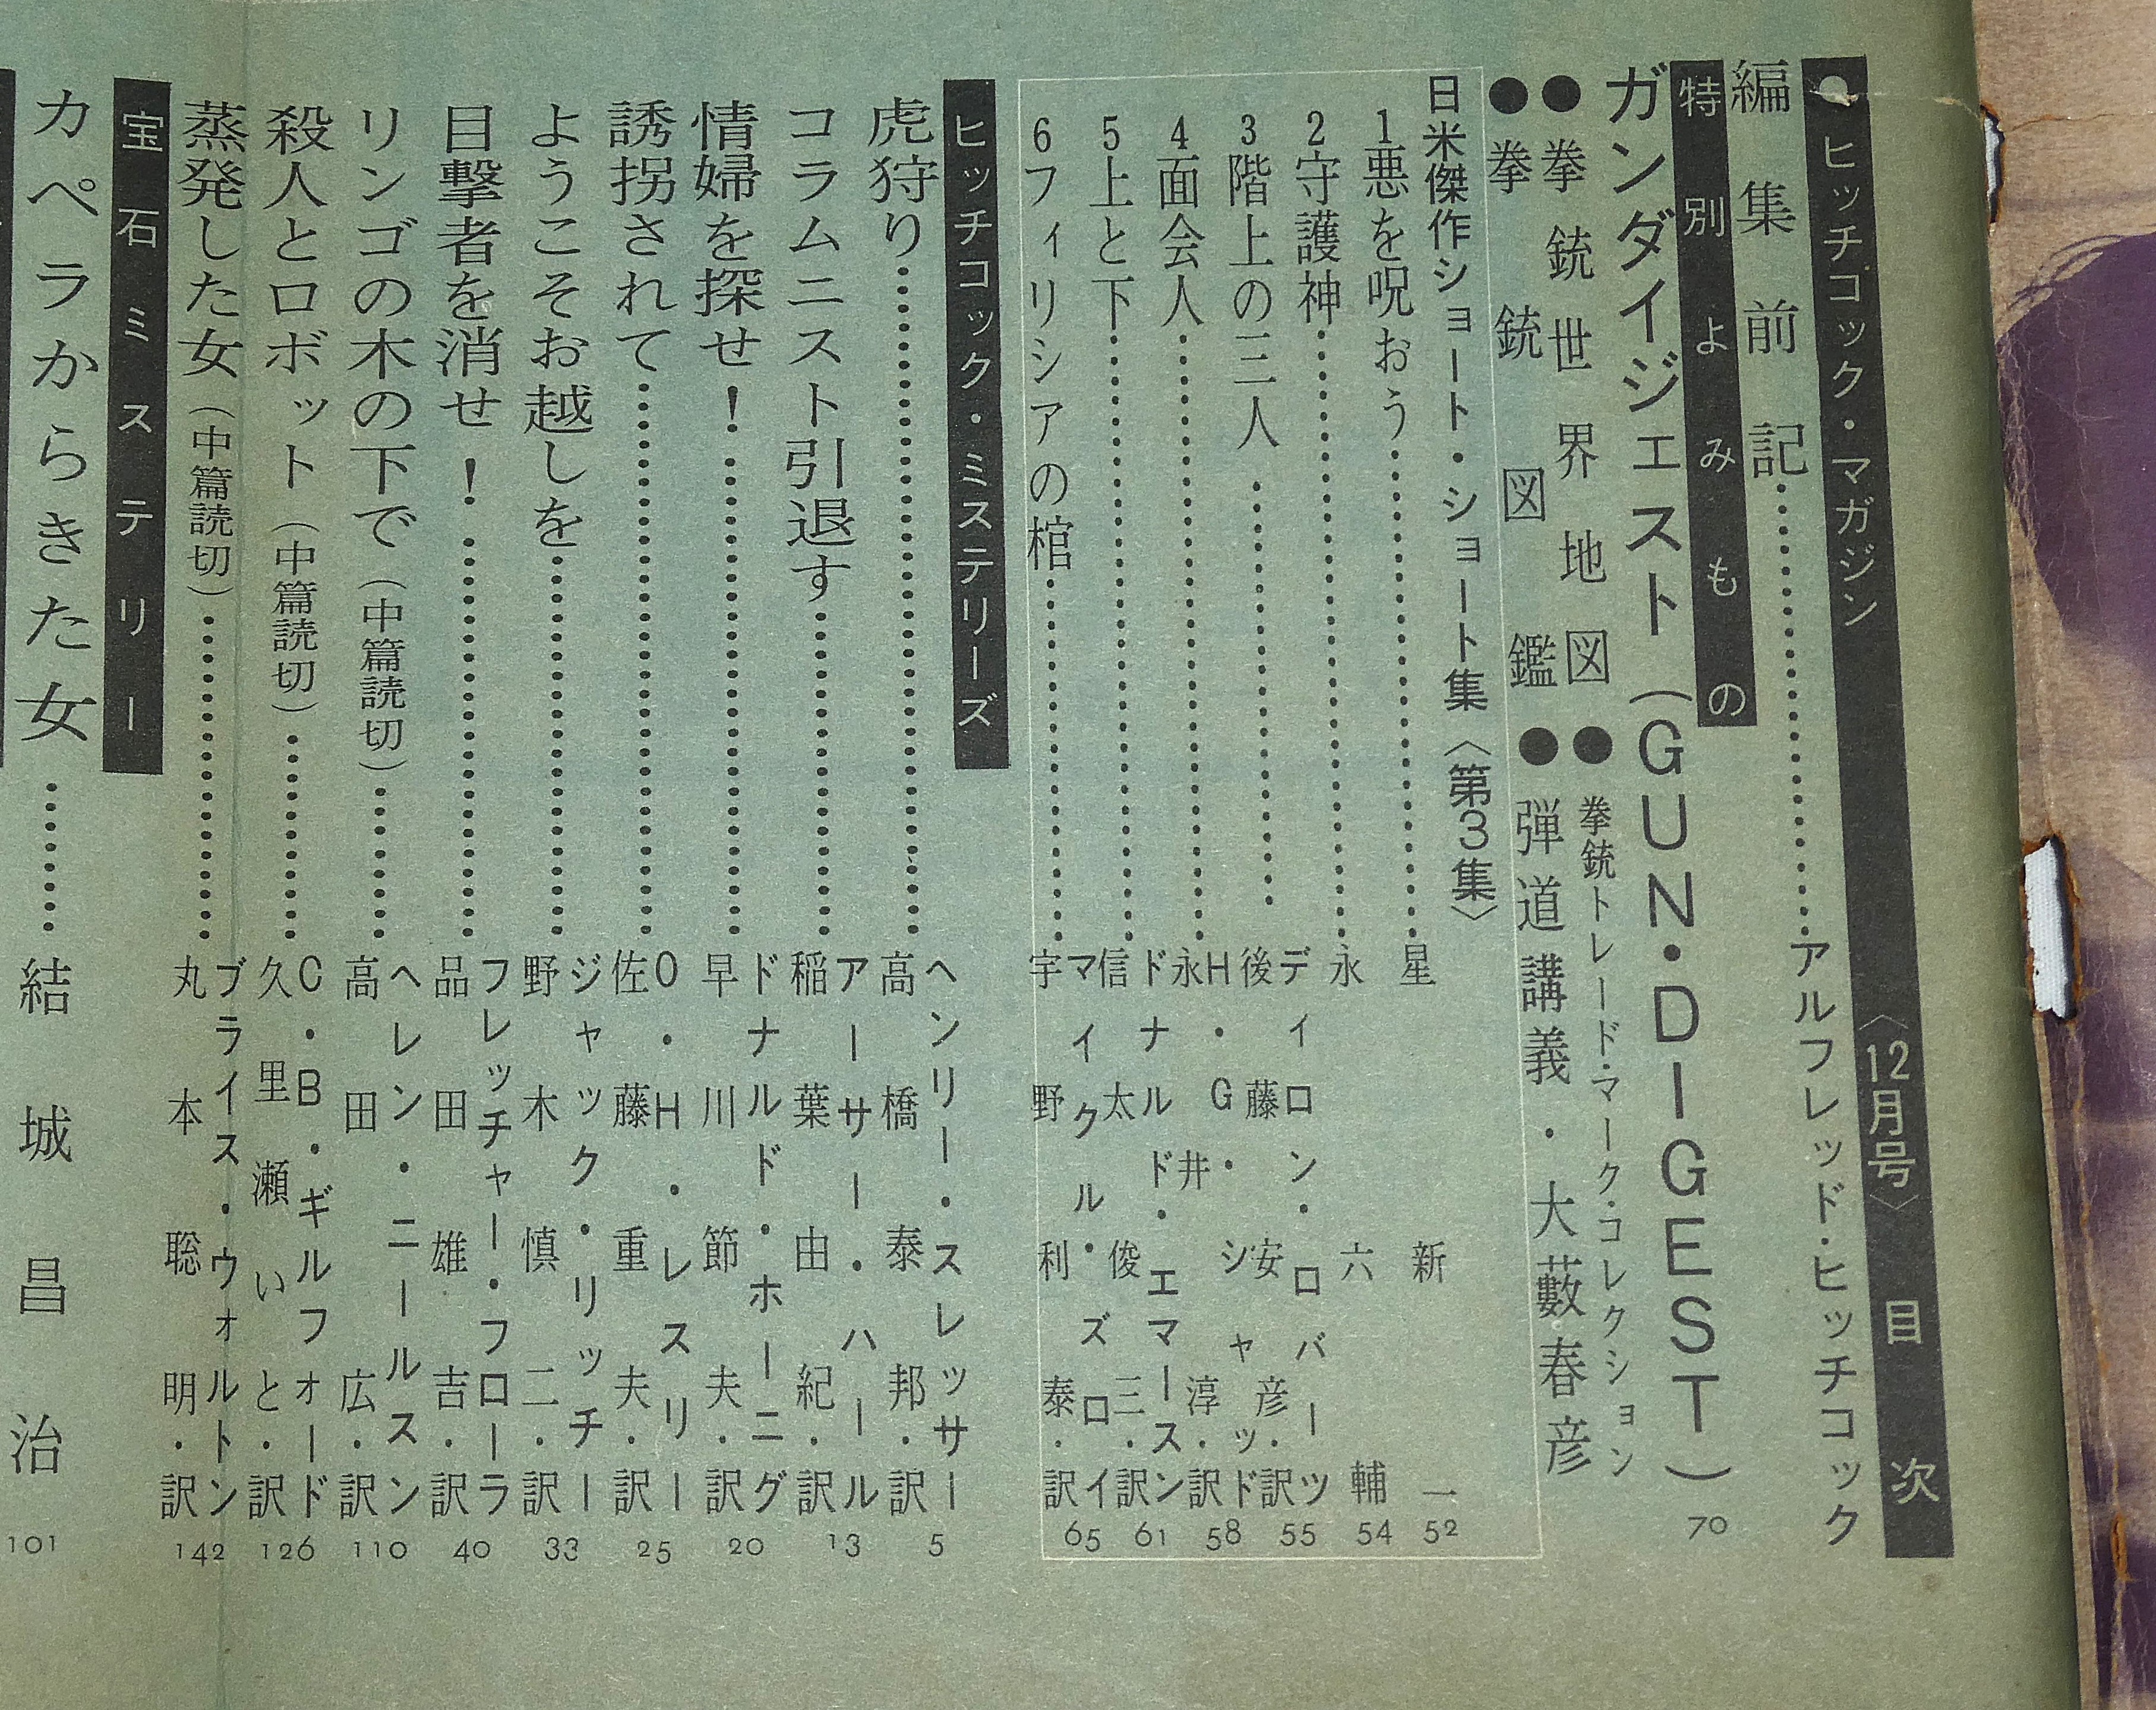 ●ヒッチコック・マガジン〈12月号〉目次
編集前記……アルフレッド・ヒッチコック
特別よみもの
ガンダイジェスト(GUN・DIGEST) 70
●拳銃世界地図 ●拳銃トレード・マーク・コレクション
●拳銃図鑑 ●弾道講義・大藪春彦
日米傑作ショート・ショート集〈第3集〉
1悪を呪おう……星新一 52
2守護神……永六輔 54
3階上の三人……ディロン・ロバーツ 後藤安彦・訳 55
4面会人……H・G・シャッド 永井淳・訳 58
5上と下……ドナルド・エマースン 信太俊三・訳 61
6フィリシアの棺……マイクル・ズロイ 宇野利泰・訳 65
ヒッチコック・ミステリーズ
虎狩り……ヘンリー・スレッサー 高橋泰邦・訳 5
コラムニスト引退す……アーサー・ハール 稲葉由紀・訳 13
情婦を探せ!……ドナルド・ホーニグ 早川節夫・訳 20
誘拐されて……O・H・レスリー 佐藤重夫・訳 25
ようこそお越しを……ジャック・リッチー 野木慎二・訳 33
目撃者を消せ!……フレッチャー・フローラ 品田雄吉・訳 40
リンゴの木の下で(中篇読切)……ヘレン・ニールスン 高田広・訳 110
殺人とロボット(中篇読切)……C・B・ギルフォード 久里瀬いと・訳 126
蒸発した女(中篇読切)……ブライス・ウォルトン 丸本聡明・訳 142
宝石ミステリー
カペラからきた女……結城昌治 101